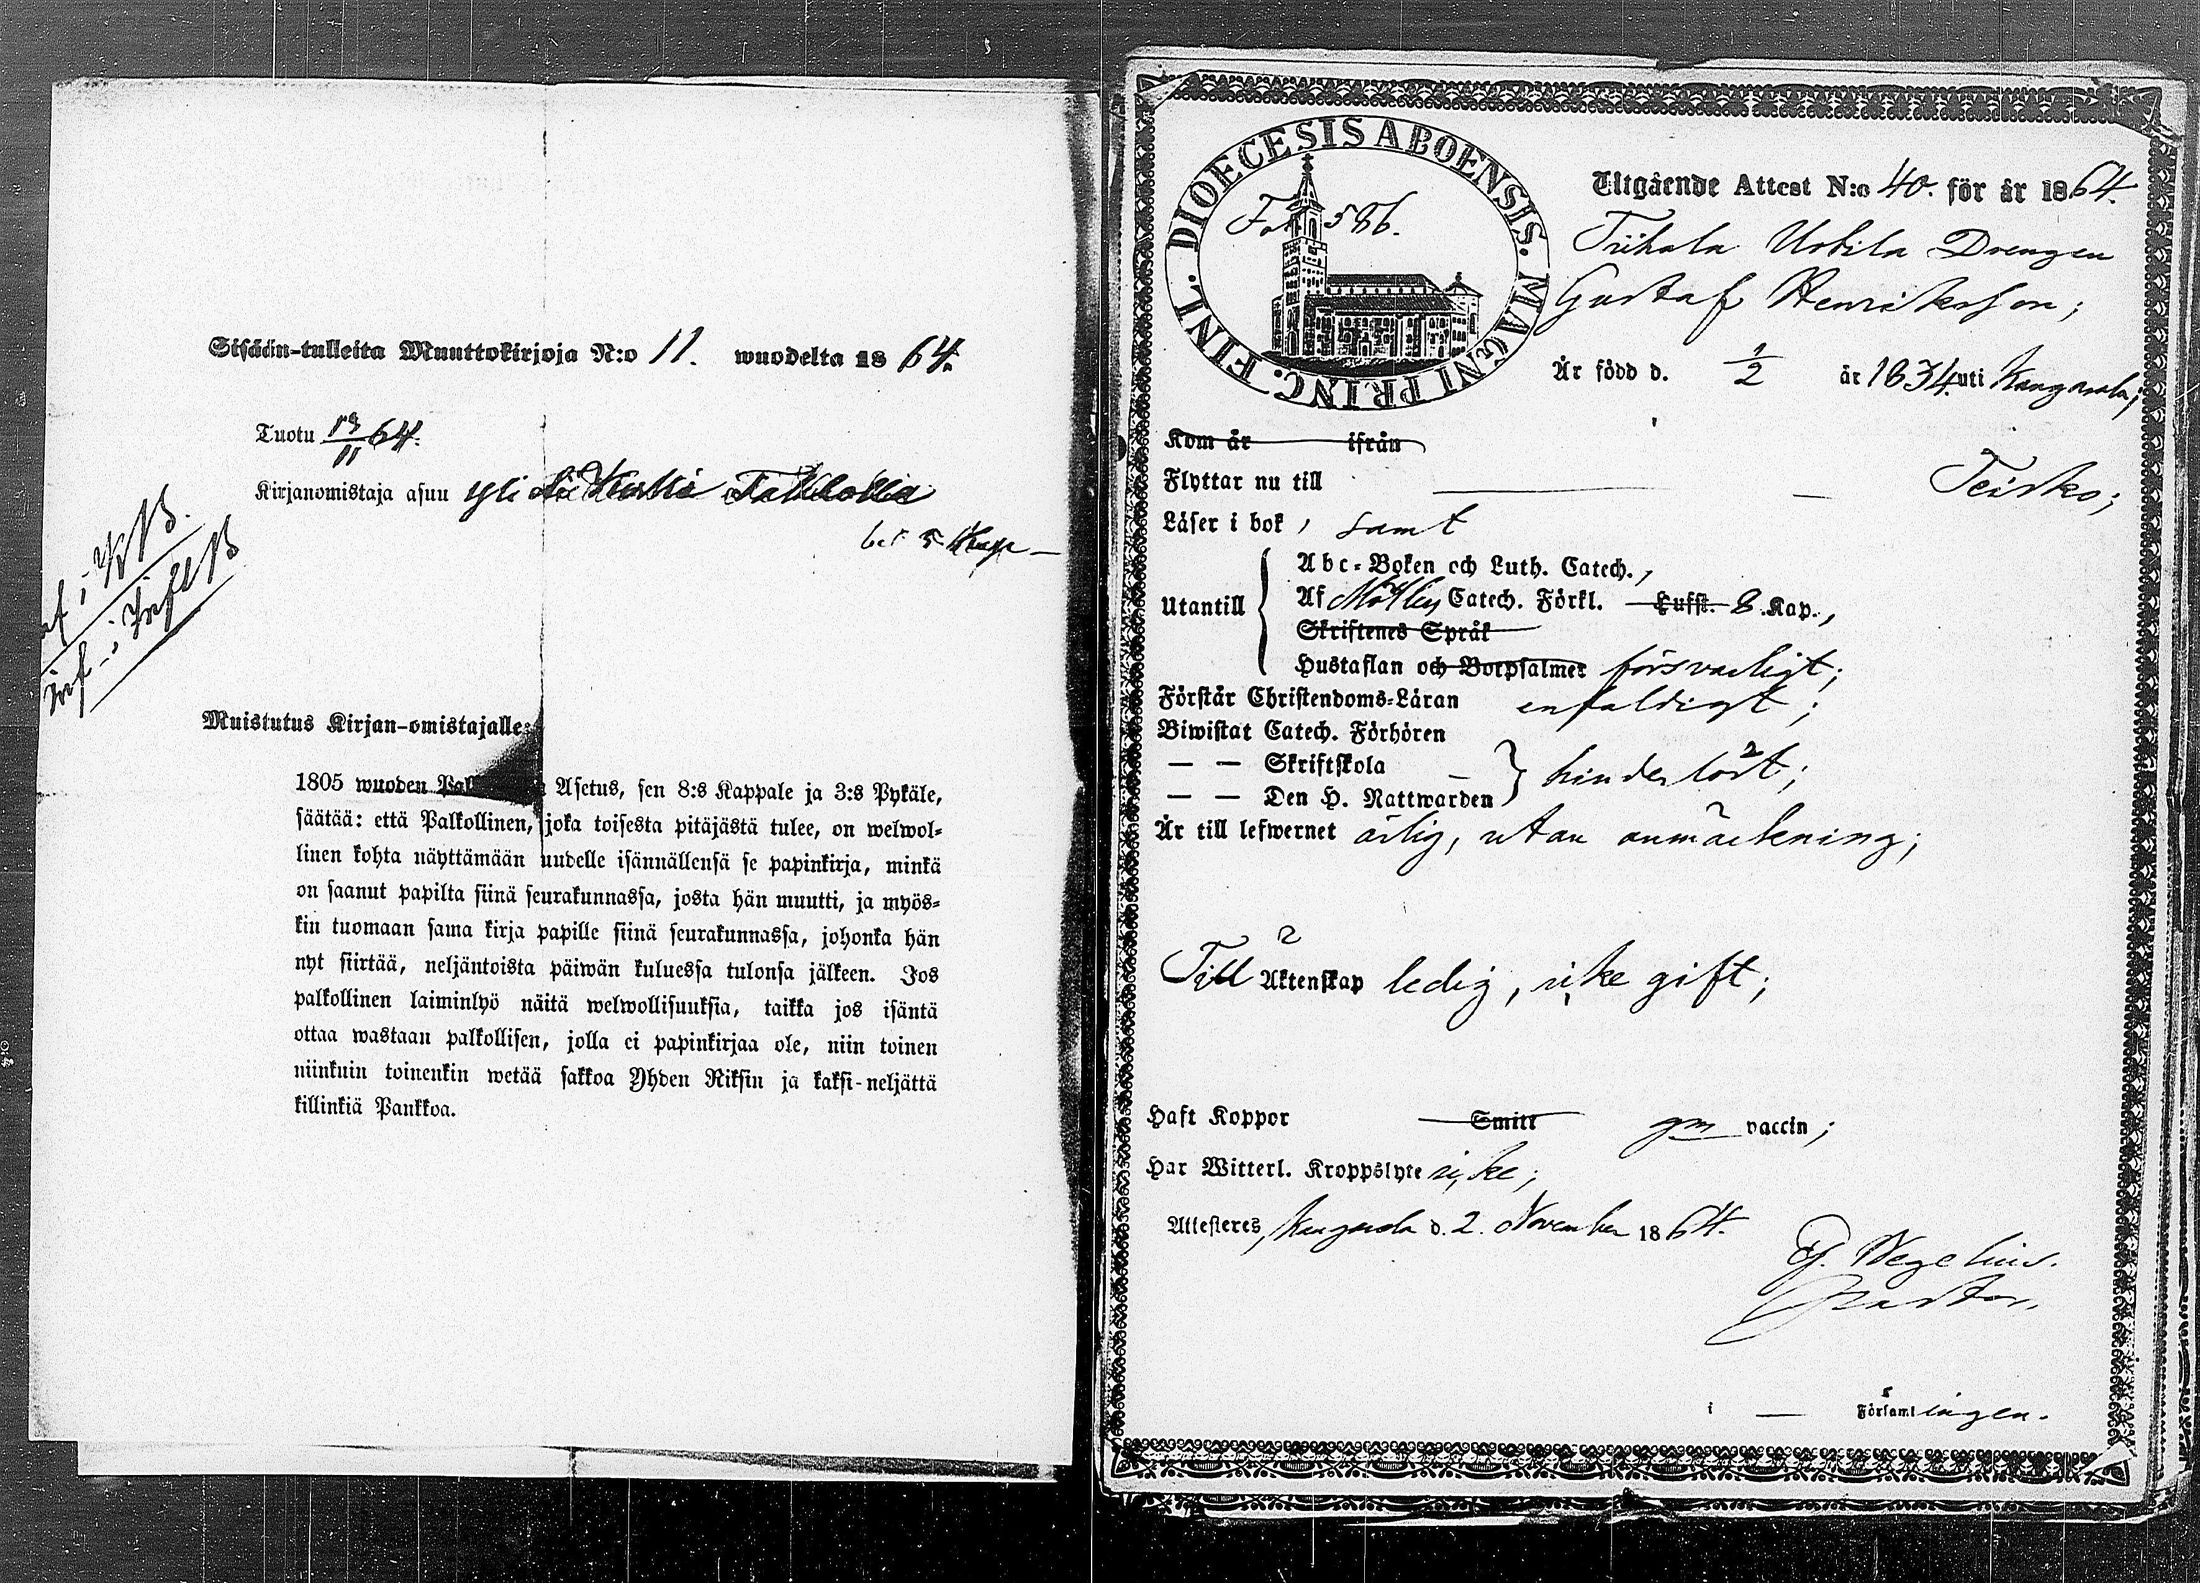 Sisään-tulleita Muuttokirjoja N:o 11. wuodelta 1864.
Tuotu 13/11 64.
Kirjanomistaja asuu yli
bet 5 Kop
i KB.
inf. i InflB
Muistutus Kirjan-omistajalle:
1805 wuoden Asetus, sen 8:s Kappale ja 3:s Pykäle,
säätää: että Palkollinen, joka toisesta pitäjästä tulee, on welwol-
linen kohta näyttämään uudelle isännällensä se papinkirja, minkä
on saanut papilta siinä seurakunnassa, josta hän muutti, ja myös-
kin tuomaan sama kirja papille siinä seurakunnassa, johonka hän
nyt siirtää, neljäntoista päiwän kuluessa tulonsa jälkeen. Jos
palkollinen laiminlyö näitä welwollisuuksia, taikka jos isäntä
ottaa wastaan palkollisen, jolla ei papinkirjaa ole, niin toinen
niinkuin toinenkin wetää sakkoa Yhden Riksin ja kaksi-neljättä
killinkiä Pankkoa.
DIOECESIS ABOENSIS. MAGNI PRINC. FINL.
586.
Utgående Attest N:o 40. för år 1864.
Drengen
Gustaf Henriksson;
Är född d. 1/2 år 1834. uti Kangasala;
Kom år ifrån
Flyttar nu till — Teisko;
Läser i bok, samt
Utantill
Abc-Boken och Luth. Catech.,
Af Catech. Förkl. Lufft. 8 Kap.,
Skriftenes Språk
Hustaflan och Botpsalmer försvarligt;
Förstår Christendoms-Läran enfaldigt;
Biwistat Catech. Förhören
— — Skriftskola — hinderlöst;
— — Den H. Nattwarden
Är till lefwernet ärlig, utan anmärkning;
Till Äktenskap ledig, icke gift;
Haft Koppor Smitt gm vaccin;
Har Witterl. Kroppslyte icke;
Attesteres, Kangasala d. 2. November 1864.
Wegelius.
Pastor.
i — Församlingen.